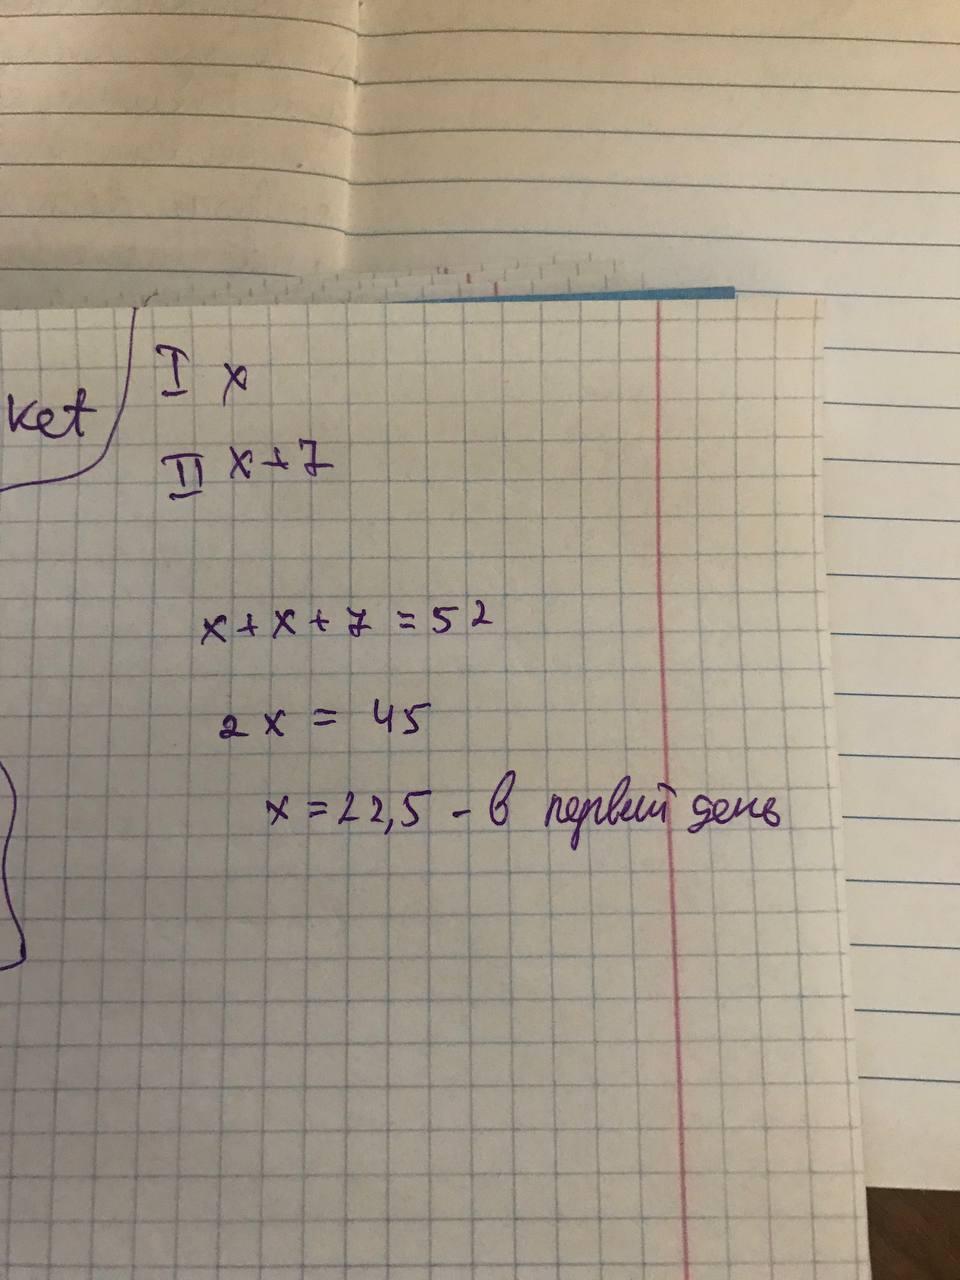 ket
I x
II x+7
x+x+7=52
2x = 45
x=22,5 - в первый день